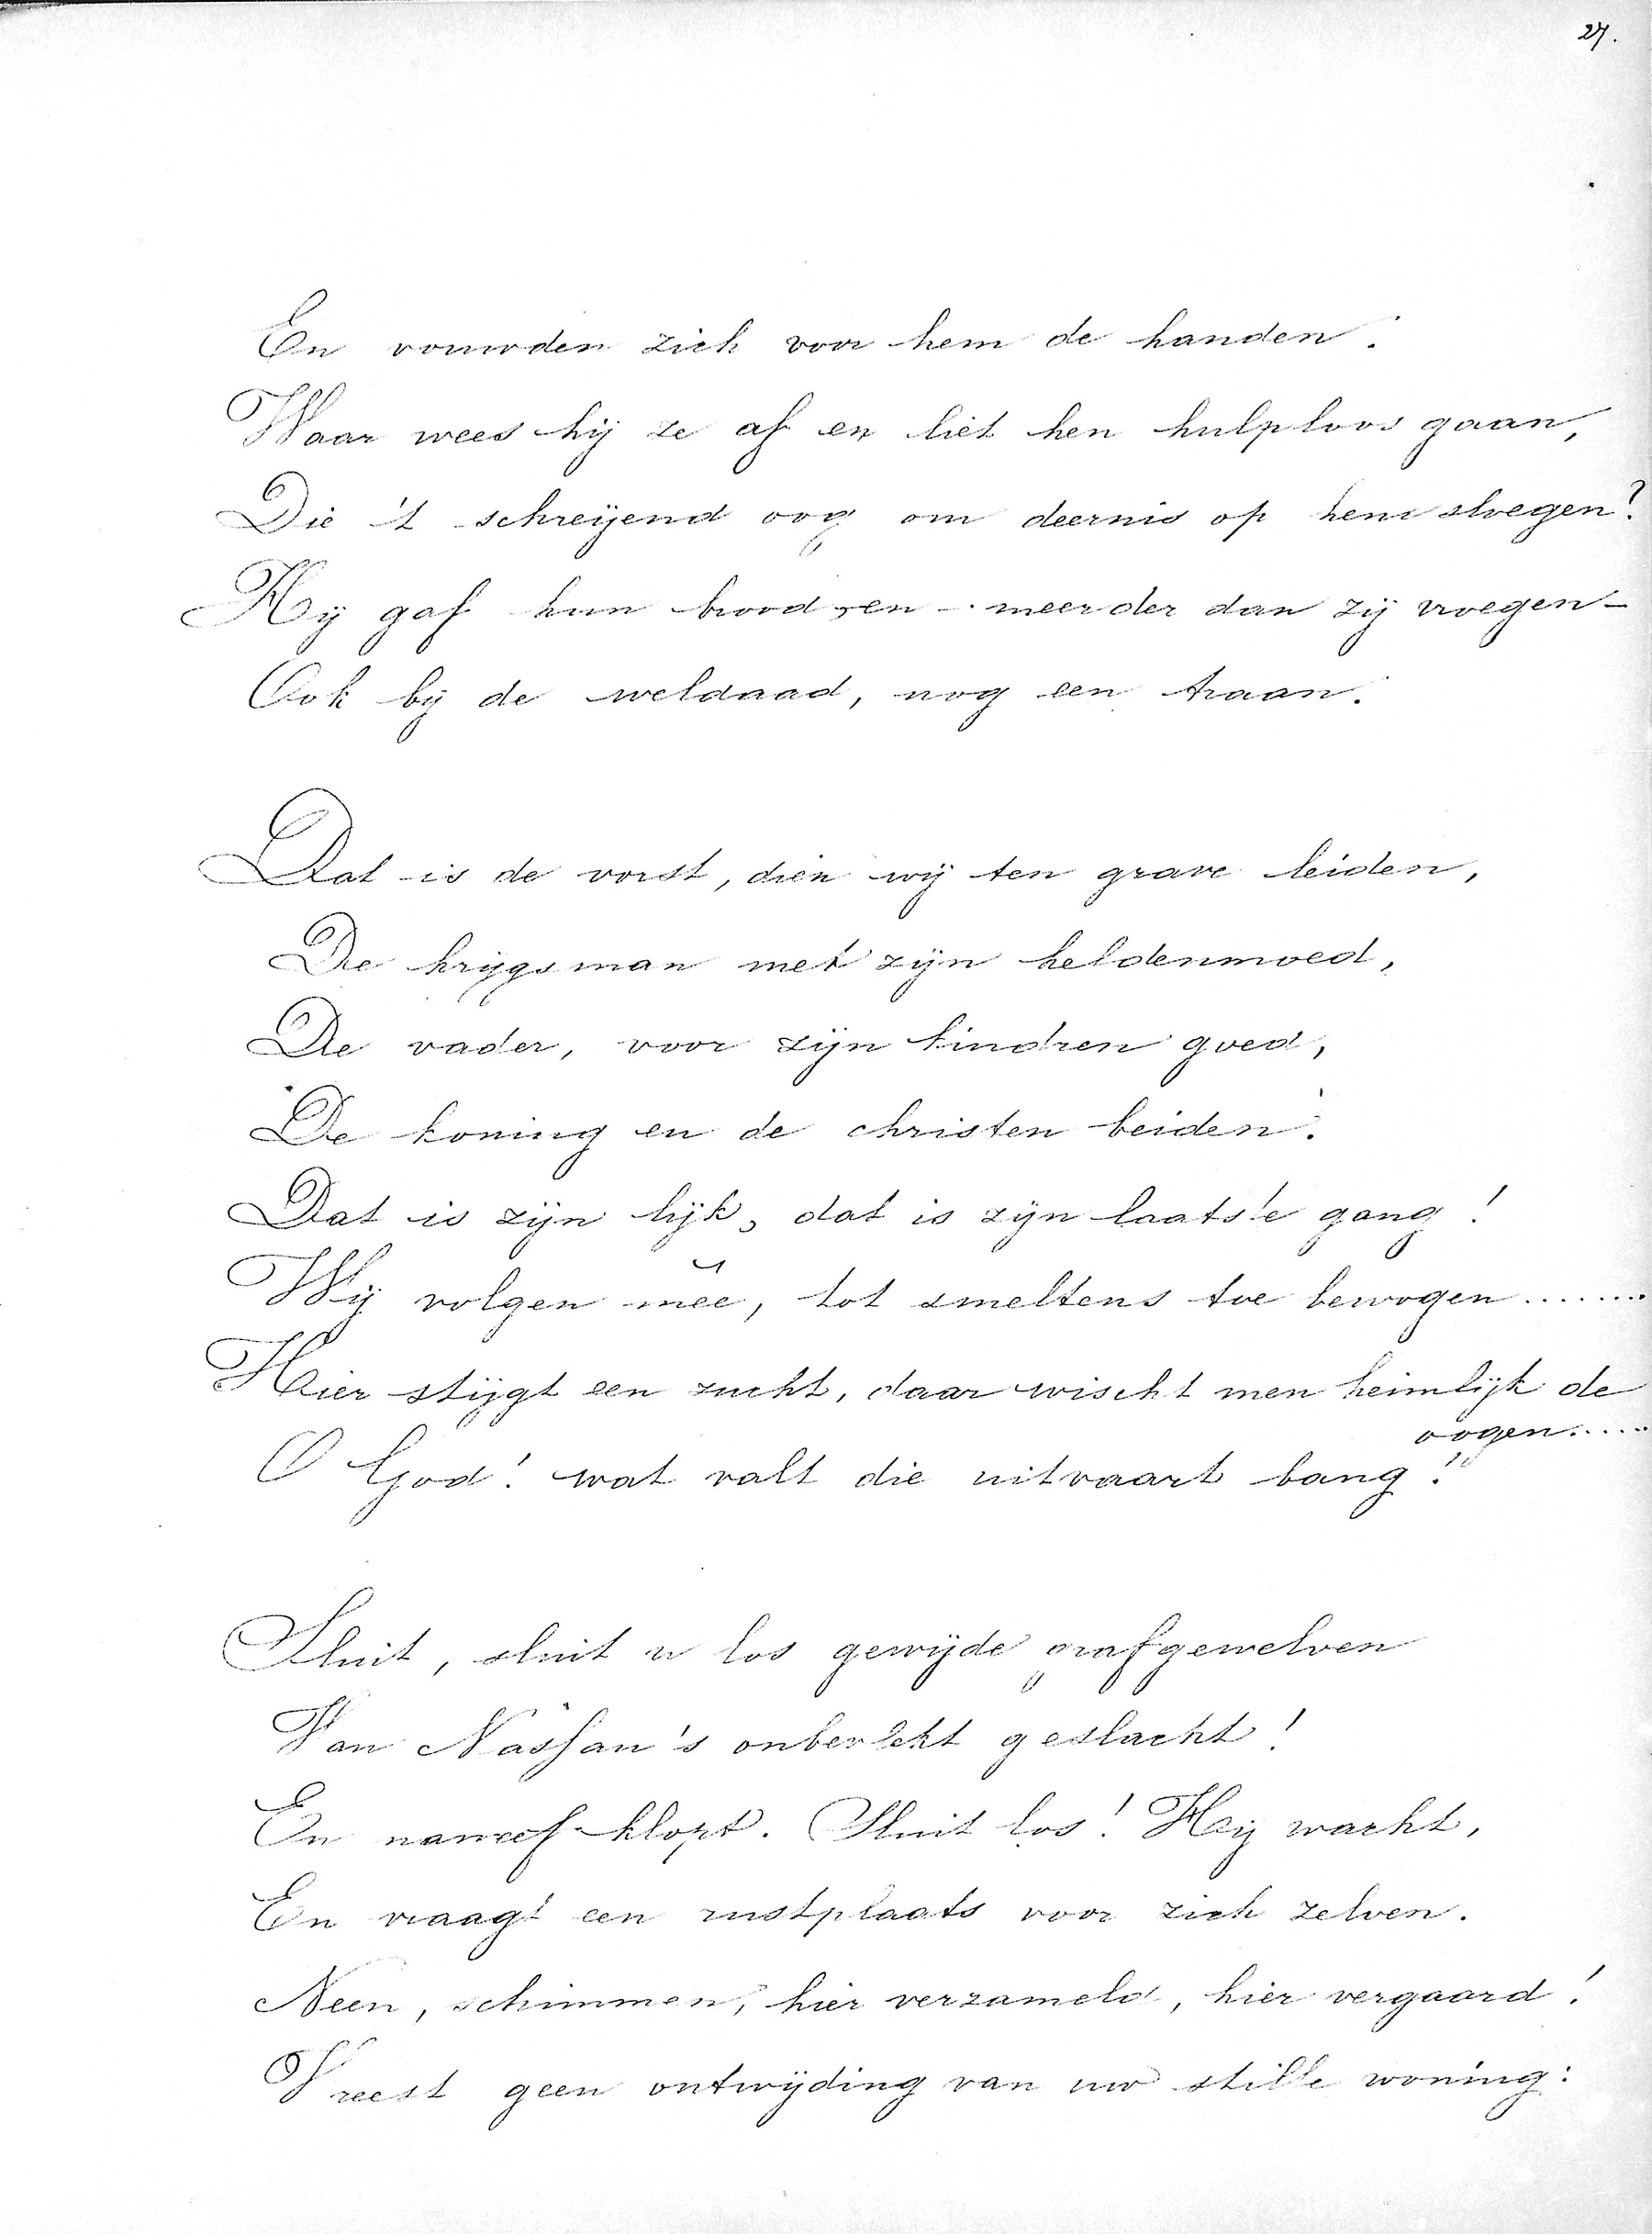 27.
En vouwden zich voor hem de handen.
Waar wees hij ze af en liet hen hulploos gaan,
Die 't schreijend oog om deernis op hem sloegen?
Hij gaf hun brood, en - meerder dan zij vroegen -
Ook bij de weldaad, nog een traan.
Dat is de vorst, dien wij ten grave leiden,
De krijgsman met zijn heldenmoed,
De vader, voor zijn kindren goed,
De koning en de christen beiden.
Dat is zijn lijk, dat is zijn laatste gang!
Wij volgen mêe, tot smeltens toe bewogen........
Hier stijgt een zucht, daar wischt men heimlijk de
oogen.....
O God! wat valt die uitvaart bang!
Sluit, sluit u los gewijde grafgewelven
Van Nassau's onbevlekt geslacht!
En naneef klopt. Sluit los! Hij wacht,
En vraagt een rustplaats voor zich zelven.
Neen, schimmen, hier verzameld, hier vergaard!
Vreest geen ontwijding van uw stille woning: